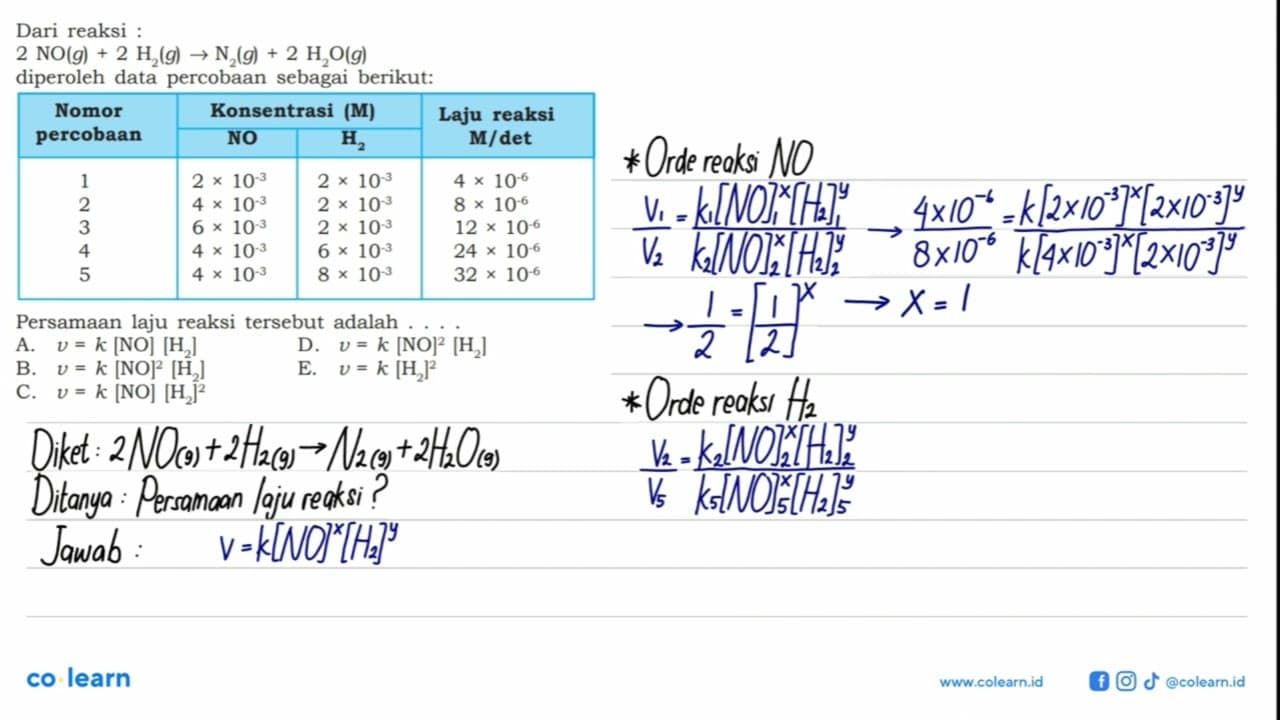 Dari reaksi :
2 NO(g) + 2 H₂(g) → N₂(g) + 2 H₂O(g)
diperoleh data percobaan sebagai berikut:
Nomor percobaan Konsentrasi (M) Laju reaksi M/det
NO H₂
1 2 × 10⁻³ 2 × 10⁻³ 4 × 10⁻⁶
2 4 × 10⁻³ 2 × 10⁻³ 8 × 10⁻⁶
3 6 × 10⁻³ 2 × 10⁻³ 12 × 10⁻⁶
4 4 × 10⁻³ 6 × 10⁻³ 24 × 10⁻⁶
5 4 × 10⁻³ 8 × 10⁻³ 32 × 10⁻⁶
Persamaan laju reaksi tersebut adalah . . . .
A. v = k [NO] [H₂]
B. v = k [NO]² [H₂]
C. v = k [NO] [H₂]²
D. v = k [NO]² [H₂]
E. v = k [H₂]²
Diket : 2NO(g) + 2H₂(g) → N₂(g) + 2H₂O(g)
Ditanya : Persamaan laju reaksi?
Jawab : V = k[NO]ˣ[H₂]ʸ
* Orde reaksi NO
V₁/V₂ = k₁[NO]₁ˣ[H₂]₁ʸ / k₂[NO]₂ˣ[H₂]₂ʸ → 4×10⁻⁶/8×10⁻⁶ = k[2×10⁻³]ˣ[2×10⁻³]ʸ / k[4×10⁻³]ˣ[2×10⁻³]ʸ
→ 1/2 = [1/2]ˣ → X = 1
* Orde reaksi H₂
V₂/V₅ = k₂[NO]₂ˣ[H₂]₂ʸ / k₅[NO]₅ˣ[H₂]₅ʸ
co learn
www.colearn.id @colearn.id